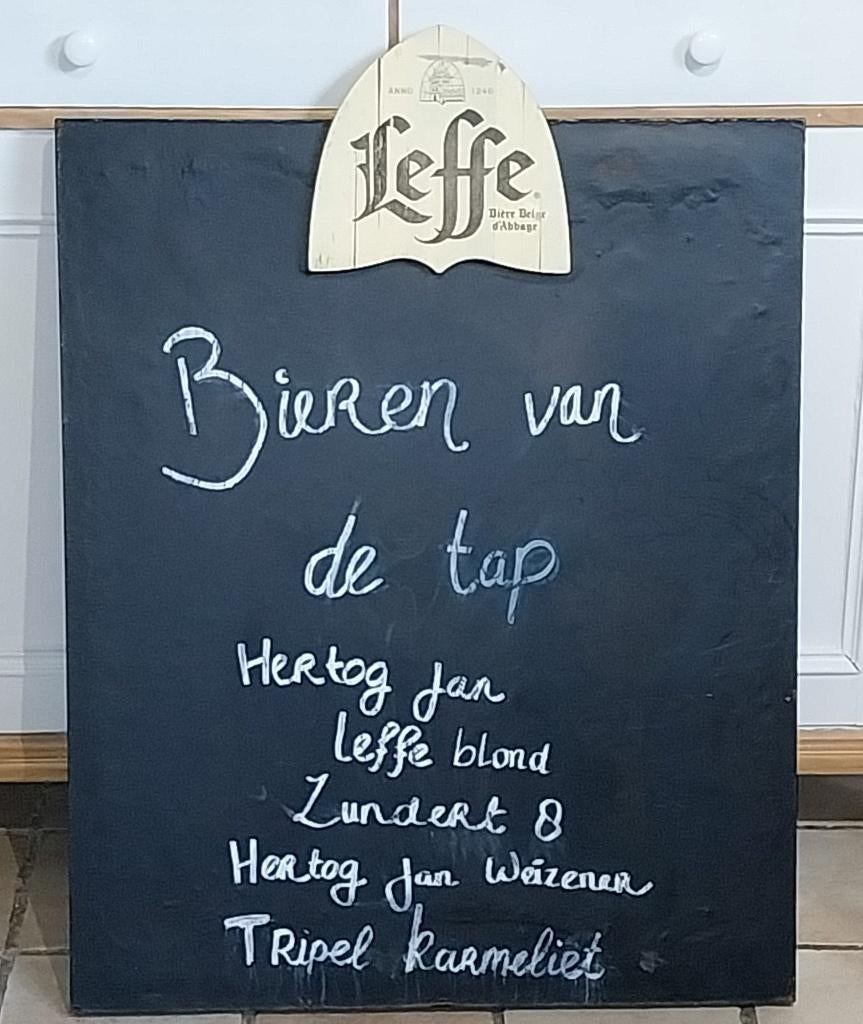 ANNO 1240
Leffe
Bière Belge
d'Abbaye
Bieren van
de tap
Hertog Jan
Leffe blond
Zundert 8
Hertog Jan Weizener
Tripel karmeliet